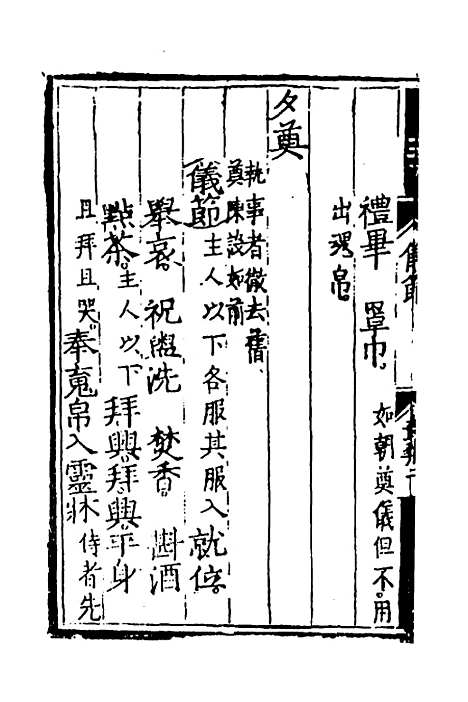 禮畢 罩巾 如朝奠儀但不用
出魂帛
夕奠
執事者徹去舊
奠陳設如前
儀節主人以下各服其服入就位
舉哀 祝盥洗 焚香 斟酒
點茶主人以下拜興拜興平身
且拜且哭奉魂帛入靈牀侍者先